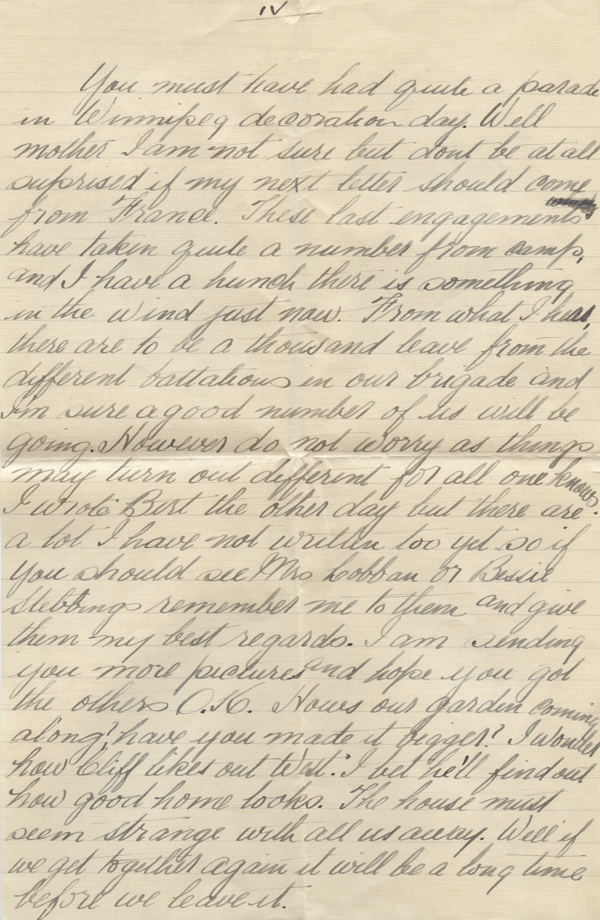 IV
You must have had quite a parade
in Winnipeg decoration day. Well
mother I am not sure but dont be at all
suprised if my next letter should come
from France. These last engagements
have taken quite a number from camp,
and I have a hunch there is something
in the wind just now. From what I hear,
there are to be a thousand leave from the
different battalions in our brigade and
im sure a good number of us will be
going. However do not worry as things
may turn out different for all one knows.
I wrote Bert the other day but there are
a lot I have not written too yet so if
you should see Mrs Cobban or Bessie
Stebbings remember me to them and give
them my best regards. I am sending
you more pictures and hope you got
the others O.K. Hows our garden coming
along? have you made it bigger? I wonder
how Cliff likes out West. I bet he'll find out
how good home looks. The house must
seem strange with all us away. Well if
we get together again it will be a long time
before we leave it.